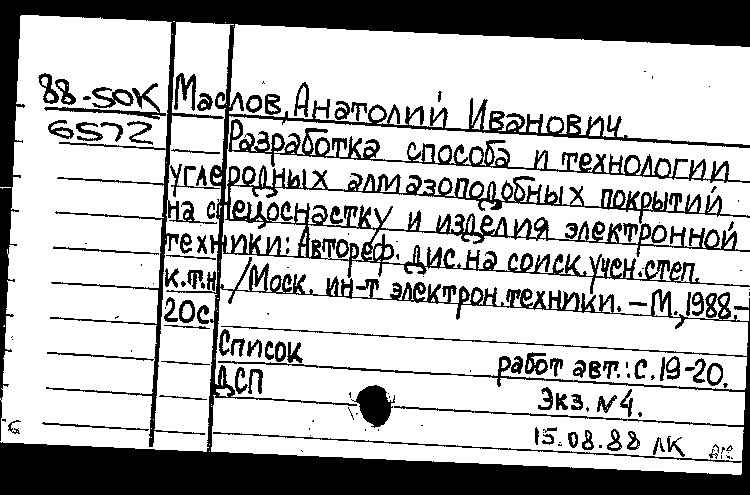 88-50К Маслов, Анатолий Иванович.
6572 Разработка способа и технологии
углеродных алмазоподобных покрытий
на спецоснастку и изделия электронной
техники: Автореф. дис. на соиск. учен. степ.
к.т.н. /Моск. ин-т электрон. техники. – М., 1988.–
20с.
Список работ авт.: с. 19-20.
ДСП Экз. №4.
15.08.88 ЛК